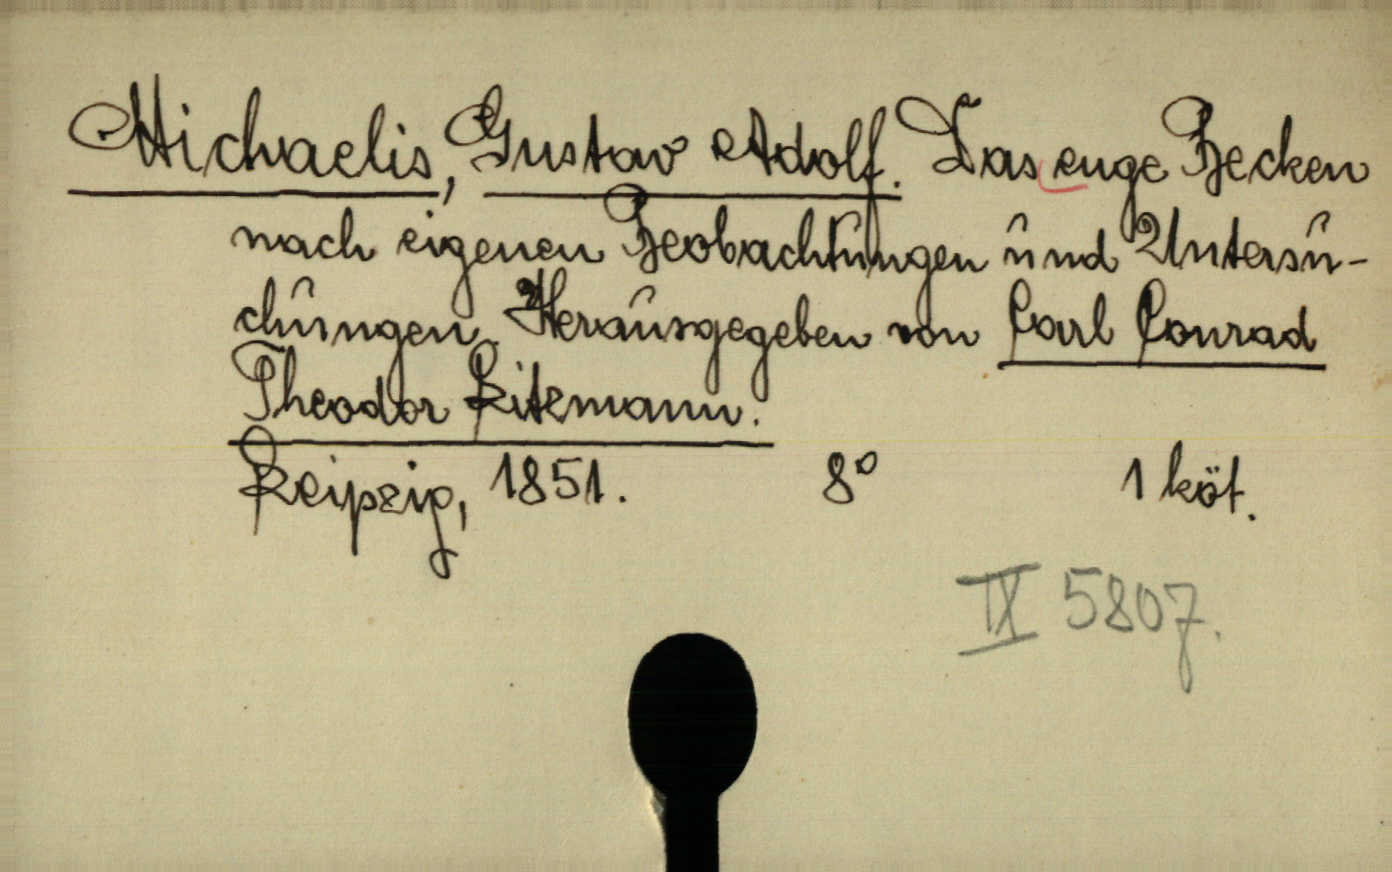 Michaelis, Gustav Adolf. Das enge Becken
nach eigenen Beobachtungen und Untersu-
chungen. Herausgegeben von Carl Conrad
Theodor Litzmann.
Leipzig, 1851. 8° 1 köt.
IX 5807.